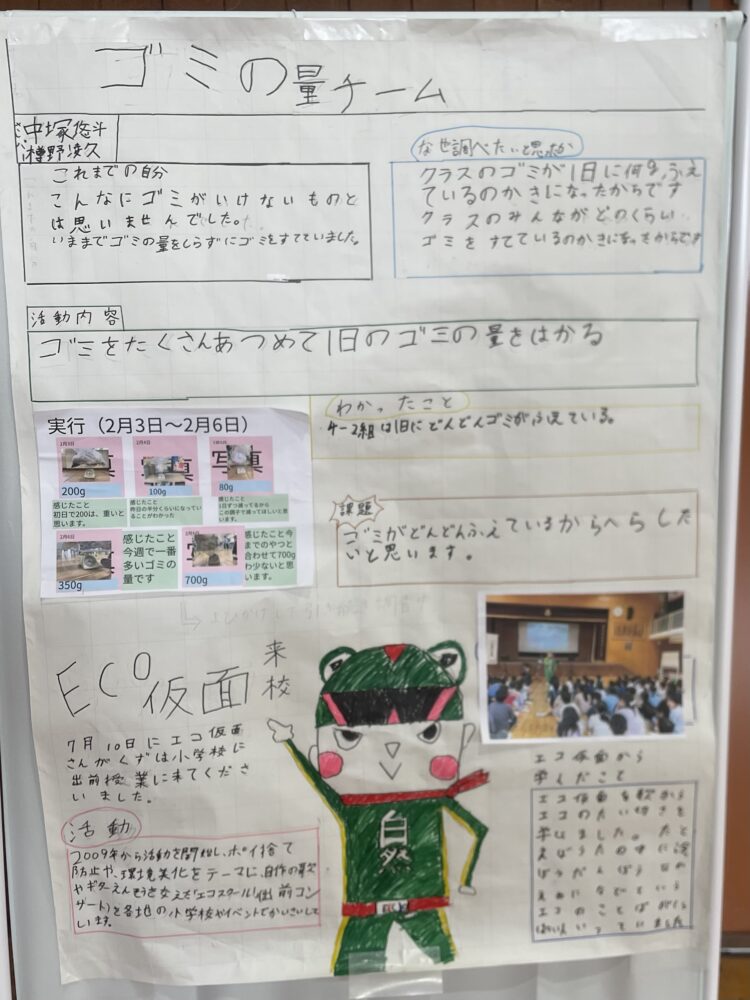 ゴミの量チーム
中塚悠斗
これまでの自分
こんなにゴミがいけないものと
は思いませんでした。
いままでゴミの量をしらずにゴミをすてていました。
なぜ調べたいと思ったか
クラスのゴミが1日に何g、ふえ
ているのかきになったからです
クラスのみんながどのくらい
ゴミをすてているのかきになったからです
活動内容
ゴミをたくさんあつめて1日のゴミの量をはかる
わかったこと
4-2組は1日にどんどんゴミがふえている。
実行（2月3日～2月6日）
2月3日
200g
感じたこと
初日で200は、重いと
思います。
2月4日
100g
感じたこと
昨日の半分くらいになってい
ることがわかった
80g
感じたこと
1日ずつ減ってるから
この調子で減ってほしいと思い
ます。
350g
感じたこと
今週で一番
多いゴミの
量です
700g
感じたこと今
までのやつと
合わせて700g
わ少ないと思
います。
課題
ゴミがどんどんふえているからへらした
いと思います。
ECO仮面
来校
7月10日にエコ仮面
さんがくずは小学校に
出前授業に来てくださ
いました。
活動
2009年から活動を開始し、ポイ捨て
防止や、環境美化をテーマに、自作の歌
やギターえんそうを交えた「エコスクール(出前コン
サート)を各地の小学校やイベントでかいさいして
います。
自然
エコ仮面から
学んだこと
エコ仮面を歌から
エコのたい切さを
学びました。たと